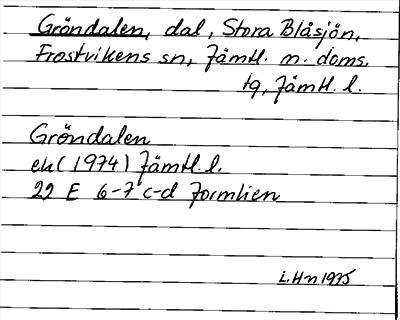 Gröndalen, dal, Stora Blåsjön,
Frostvikens sn, Jämtl. n. doms.
tg, Jämtl. l.
Gröndalen
ek (1974) Jämtl. l.
22 E 6-7 c-d Jormlien
L. Hn 1975